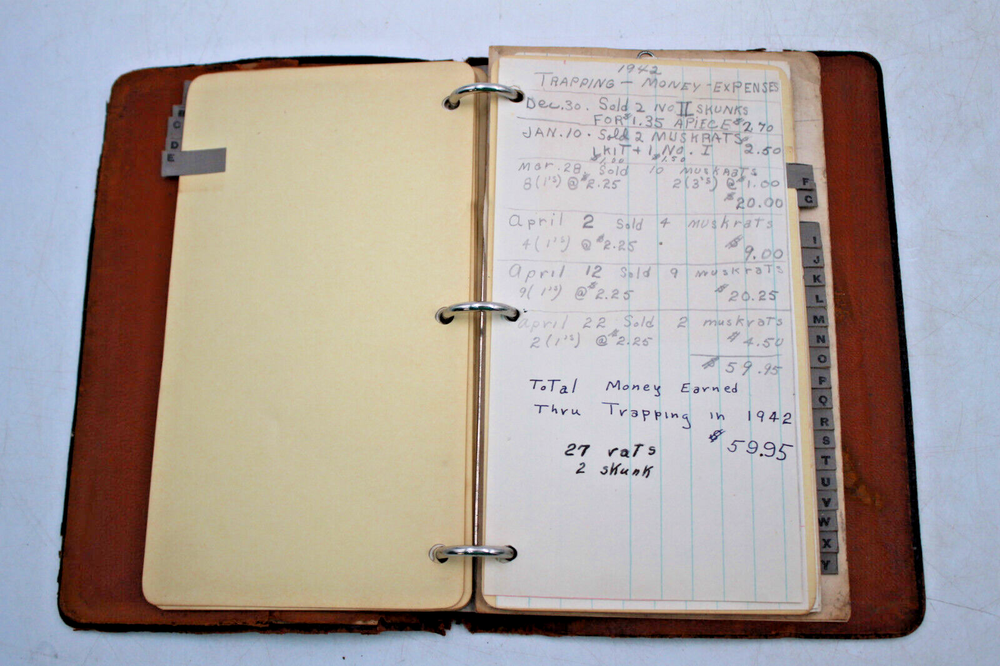 B
C
D
E
1942
TRAPPING - MONEY - EXPENSES
Dec. 30. Sold 2 No II SKUNKS
FOR $1.35 APIECE $2.70
JAN. 10. Sold 2 MUSKRATS
1 KIT + 1 No. I $2.50
$1.00 $1.50
Mar. 28, Sold 10 MUSKRATS
8 (1's) @ $2.25 2 (3's) @ $1.00
$20.00
April 2 Sold 4 muskrats
4 (1's) @ $2.25 . $9.00
April 12 Sold 9 muskrats
9 (1's) @ $2.25 $20.25
April 22 Sold 2 muskrats
2 (1's) @ $2.25 $4.50
$59.95
ToTal Money Earned
Thru Trapping in 1942
$59.95
27 raTs
2 skunk
F
G
I
J
K
L
M
N
O
P
Q
R
S
T
U
V
W
X
Y